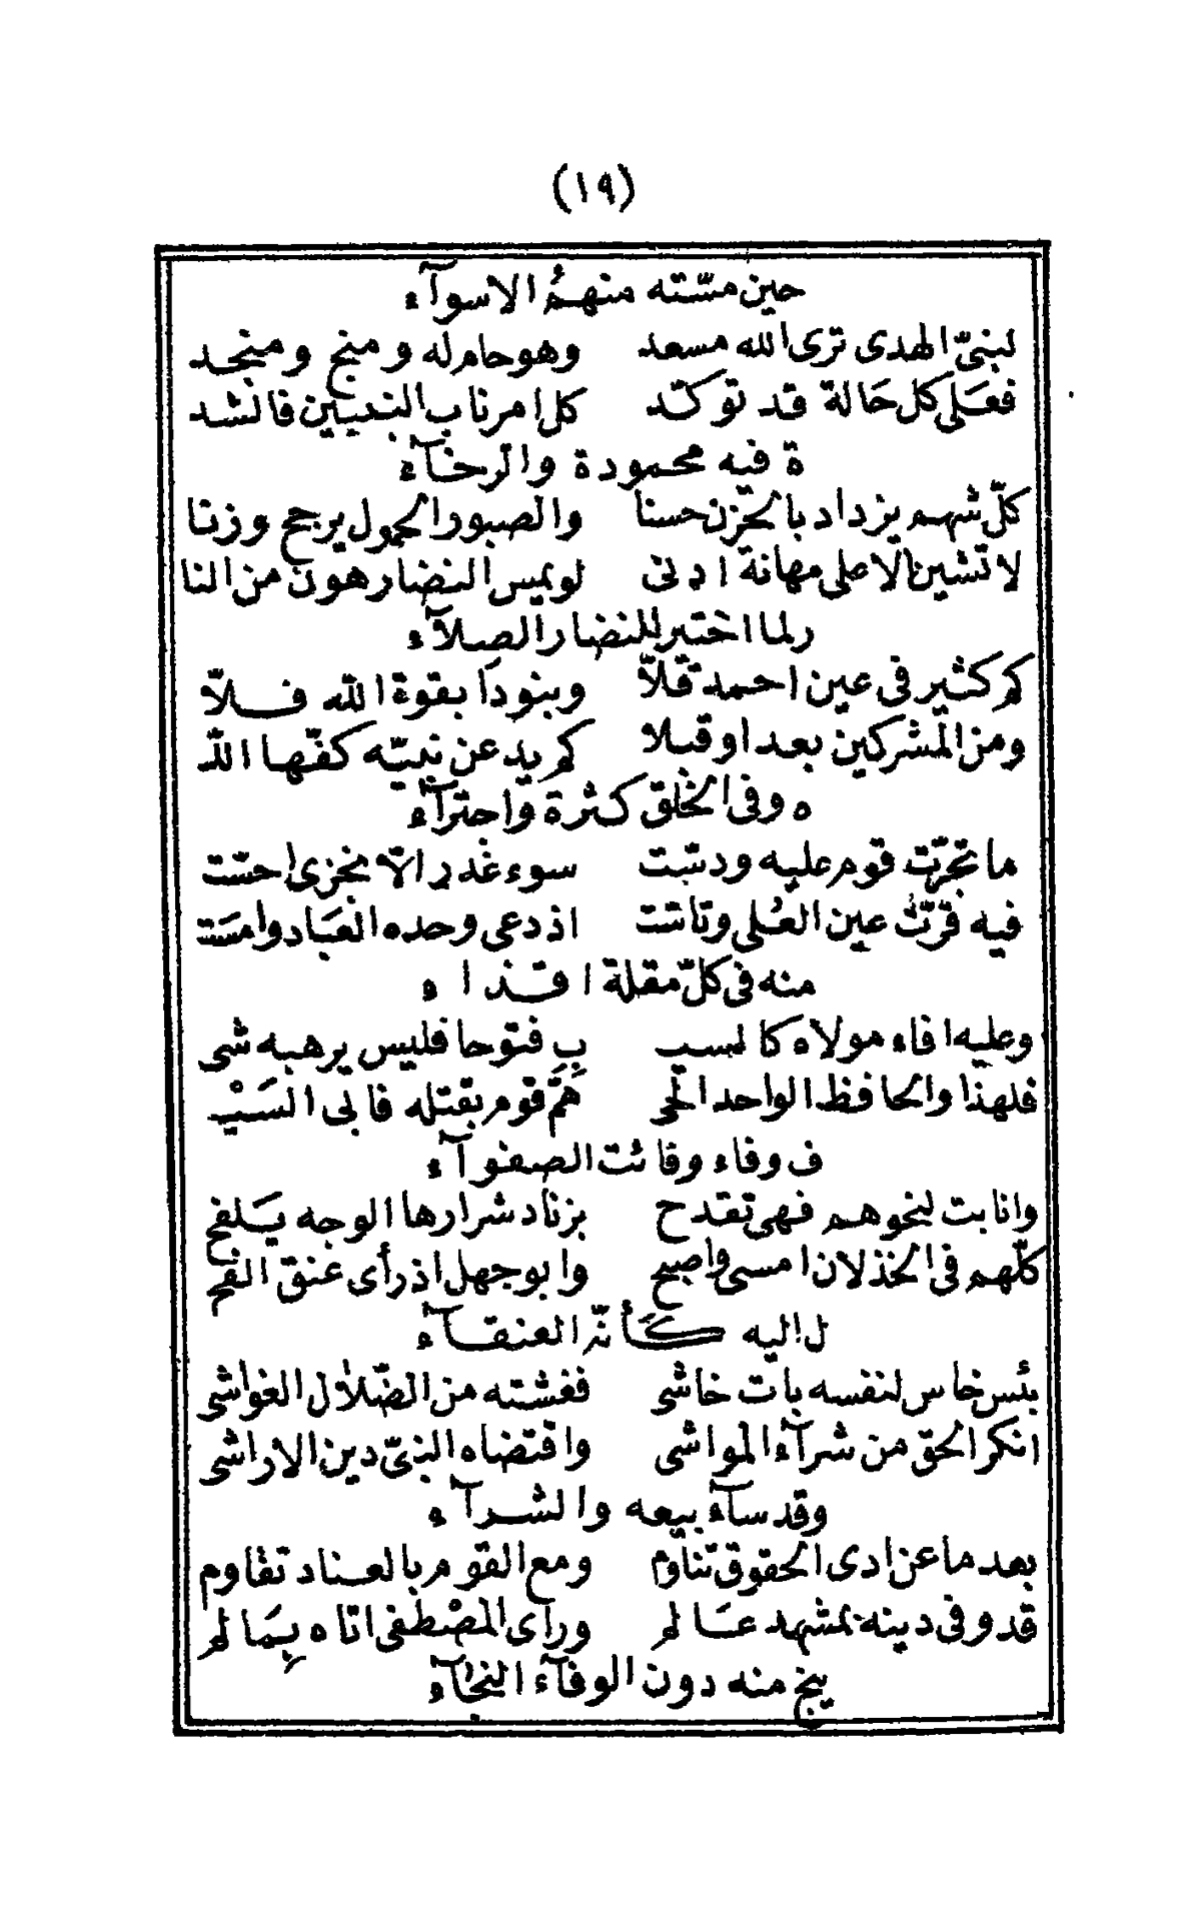 (١٩)
حين مسّته منهمُ الاسوآء
لنبىّ الهدى ترى الله مسعد وهو حام له ومنج ومنجد
فعَلى كل حَالة قد توكّد كل امر ناب النبيين فالشد
ة فيه محمودة والرخآء
كلّ شهم يزداد بالحزن حسنا والصبور الحمول يرجح وزنا
لا تشين الاعلى مهانة ادنى لو يمس النضار هون من النا
ر لما اختير للنضار الصلآء
كم كثير فى عين احمد قلّا وبنودا بقوة الله فلّا
ومن المشركين بعد او قبلا كم يد عن نبيّه كفّها اللّٰ
ه وفى الخلق كثرة واجترآء
ما تجرّت قوم عليه ودبّت سوء غدر الّا بخزى احسّت
فيه قرّت عين العُلى وتاتت اذ دعى وحده العبَاد وامسَت
منه فى كلّ مقلة اقذاء
وعليه افاء مولاه كالسيب بِ فتوحا فليس يرهبه شى
فلهذا والحافظ الواحد الحى همّ قوم بقتله فابى السَيْ
ف وفاء وفائت الصفوآء
وانابت لنحوهم فهى تقدح بزناد شرارها الوجه يَلفح
كلّهم فى الخذلان امسى واصبح وابو جهل اذ رأى عنق الفح
ل اليه كَأنّه العنقآء
بئس خاس لنفسه بات خاشى فغشته من الضّلال الغواشى
انكر الحق من شرآء المواشى واقتضاه النبىّ دين الاراشى
وقد سآء بيعه والشرآء
بعد ما عن ادى الحقوق تناوم ومع القوم بالعناد تقاوم
قد وفى دينه بمشهد عَالم وراى المصْطفى اتاه بِمَا لم
ينج منه دون الوفآء النجآء